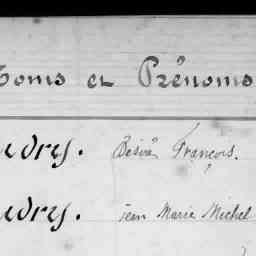 Noms et Prénoms
udry. Désiré François.
udry. Jean Marie Michel